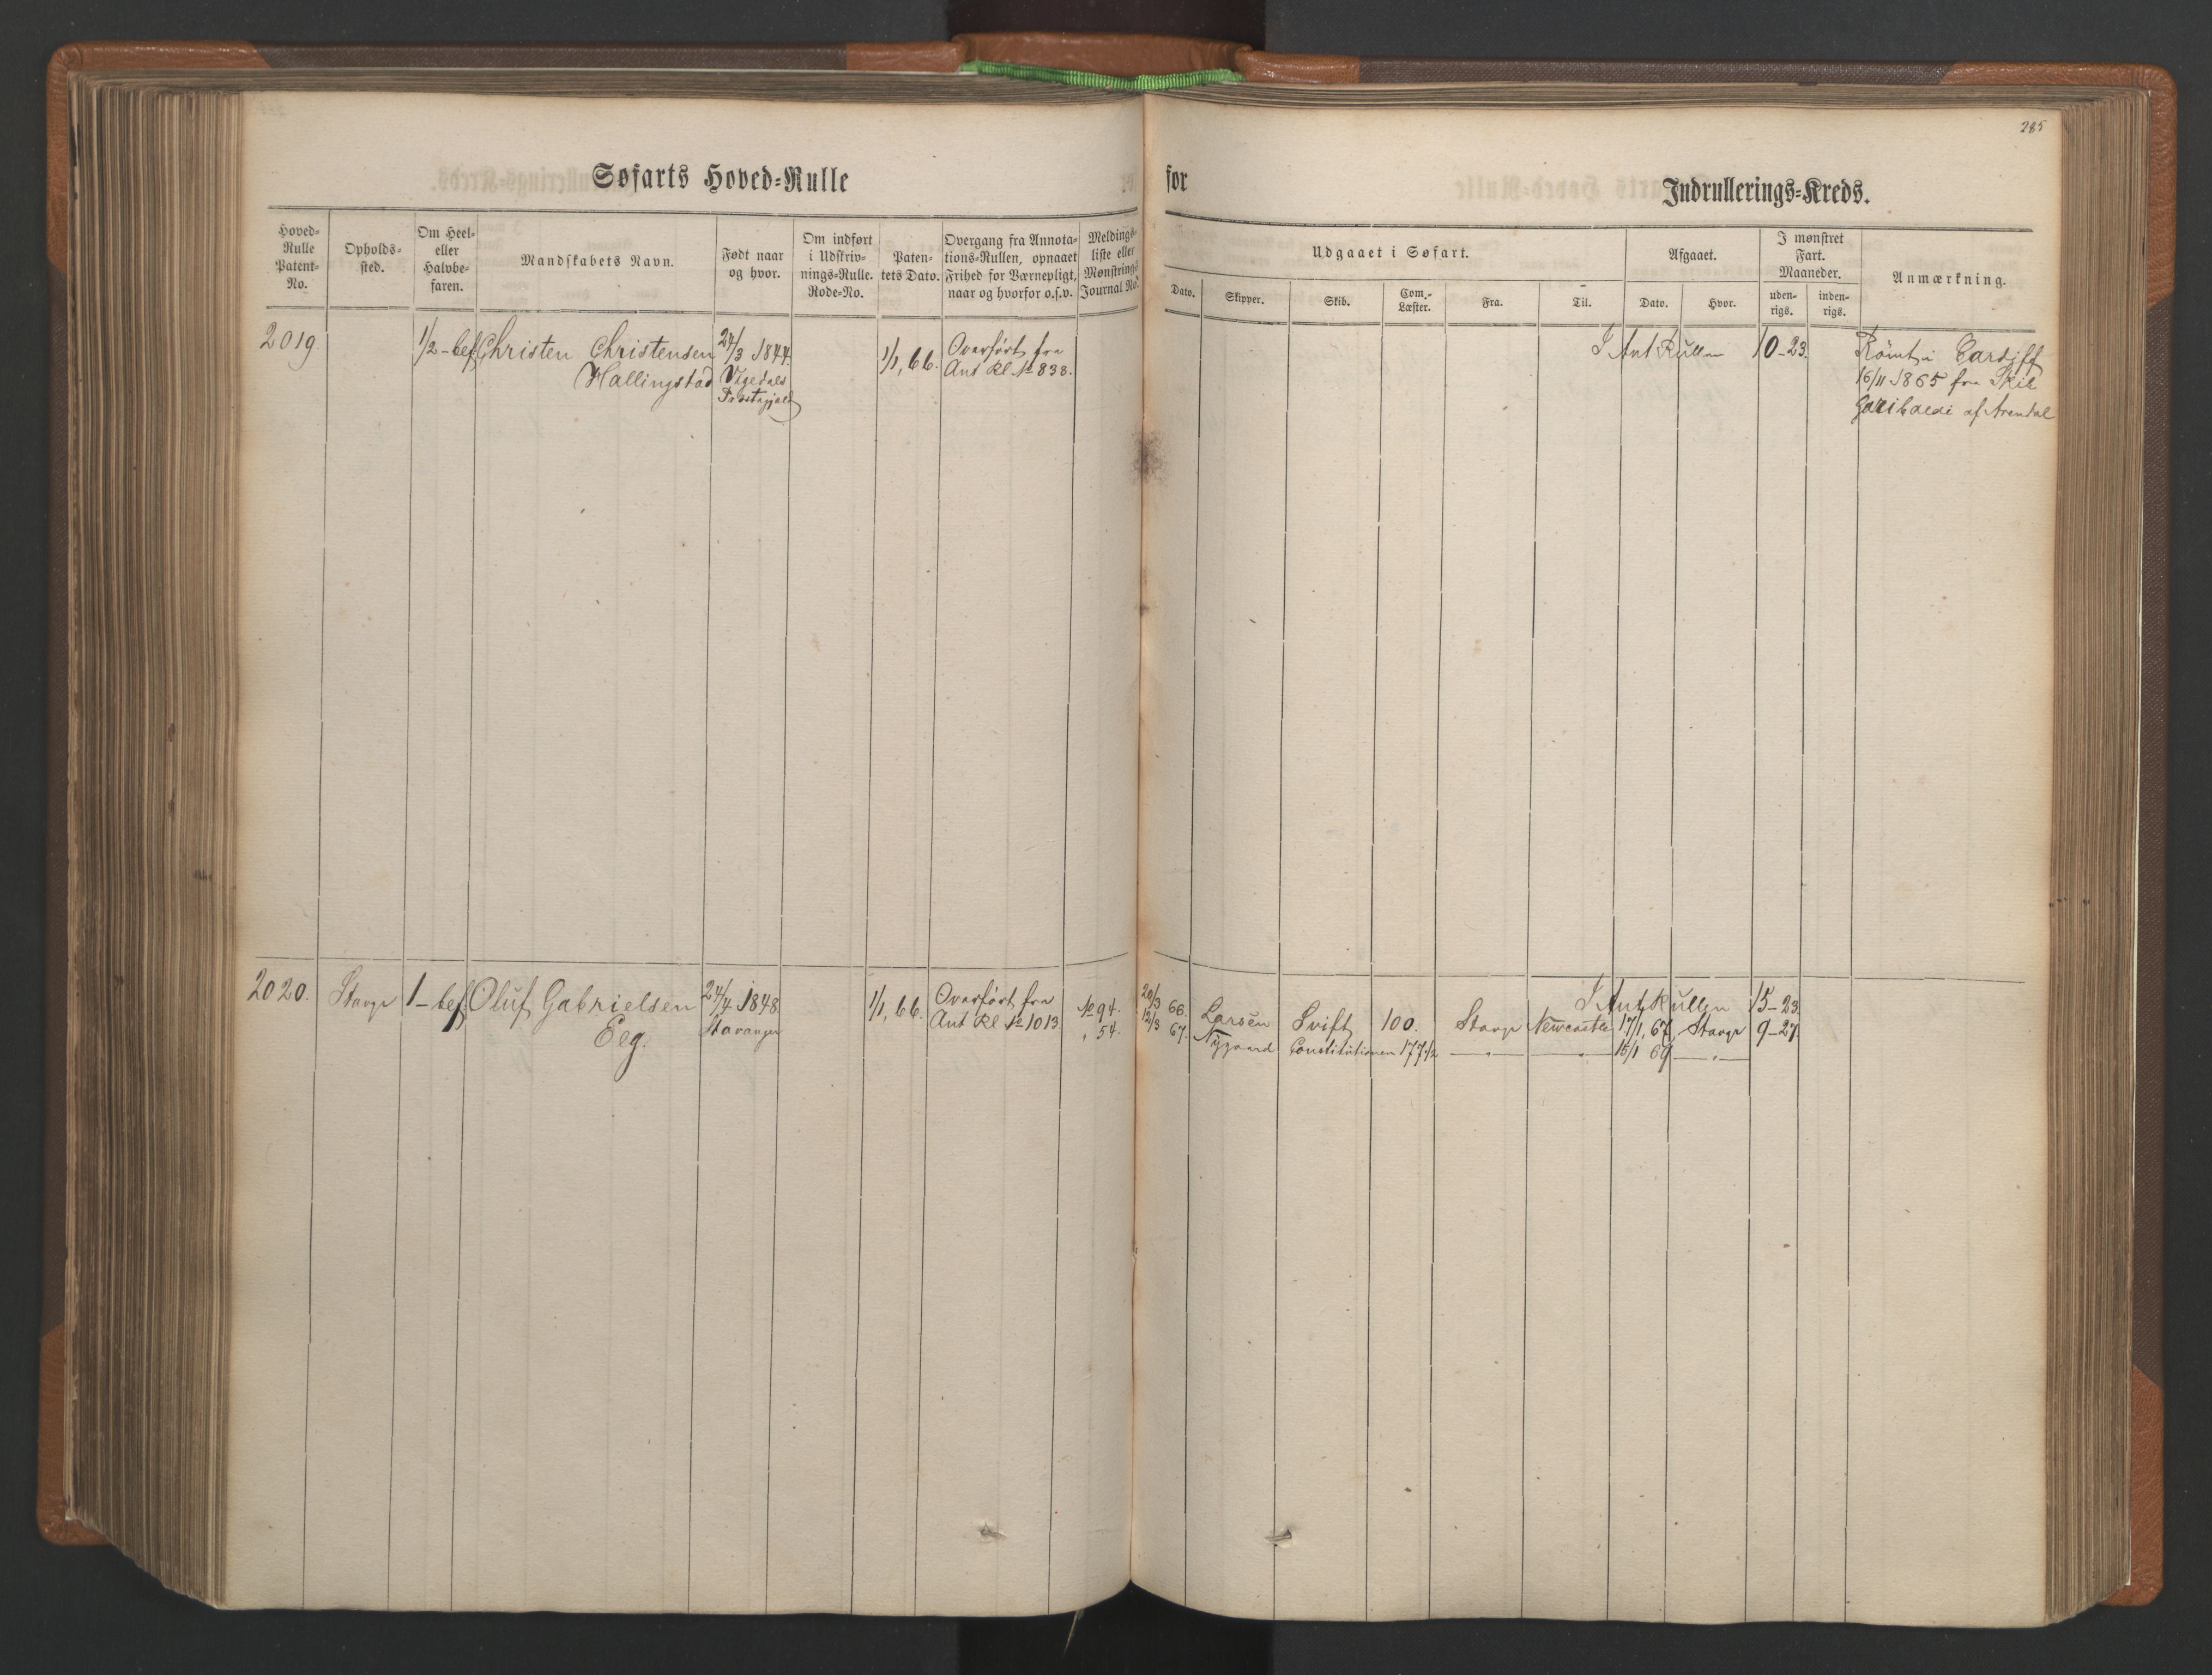 285
Søfarts Hoved-Rulle for Indrullerings-Kreds.
Hoved-Rulle Patent-No.
Opholds-sted.
Om Heel- eller Halvbe-faren.
Mandskabets Navn.
Født naar og hvor.
Om indført i Udskriv-nings-Rulle. Rode-No.
Paten-tets Dato.
Overgang fra Annota-tions-Rullen, opnaaet Frihed for Værnepligt, naar og hvorfor o.s.v.
Meldings-liste eller Mønstrings Journal No.
Udgaaet i Søfart.
Dato.
Skipper.
Skib.
Com.-Læster.
Fra.
Til.
Afgaaet.
Dato.
Hvor.
I mønstret Fart. Maaneder.
uden-rigs.
inden-rigs.
Anmærkning.
2019. 1/2-bef Christen Christensen 24/3 1844. 1/1, 66. Overført fra I Ant Rullen 10-23. Römt i Cardiff
Hallingstad Ant Rl. No 838. 16/11 1865 fra Skib
Præstegjeld Garibaldi af Arendal
2020. Stavgr 1-bef Oluf Gabrielsen 24/4 1848 1/1, 66. Overført fra I Ant Rullen 15-23.
Eeg. Stavanger Ant Rl No 1013 No 94. 20/3 66. Larsen Svift 100. Stavgr Newcastle 17/1, 67 Stavgr 9-27.
" 54. 12/3 67. Nygaard Constitutionen 177 1/2 —"— —"— 15/1 69 —"—